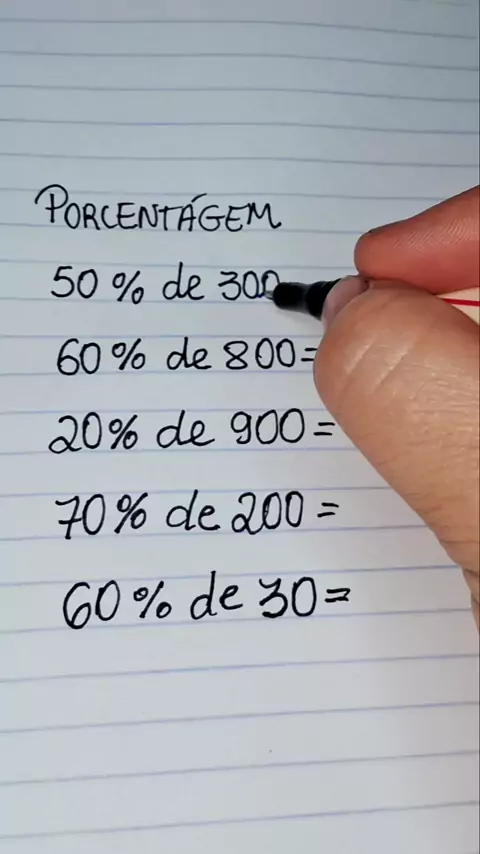 PORCENTÁGEM
50 % de 300
60 % de 800=
20% de 900=
70% de 200 =
60% de 30=